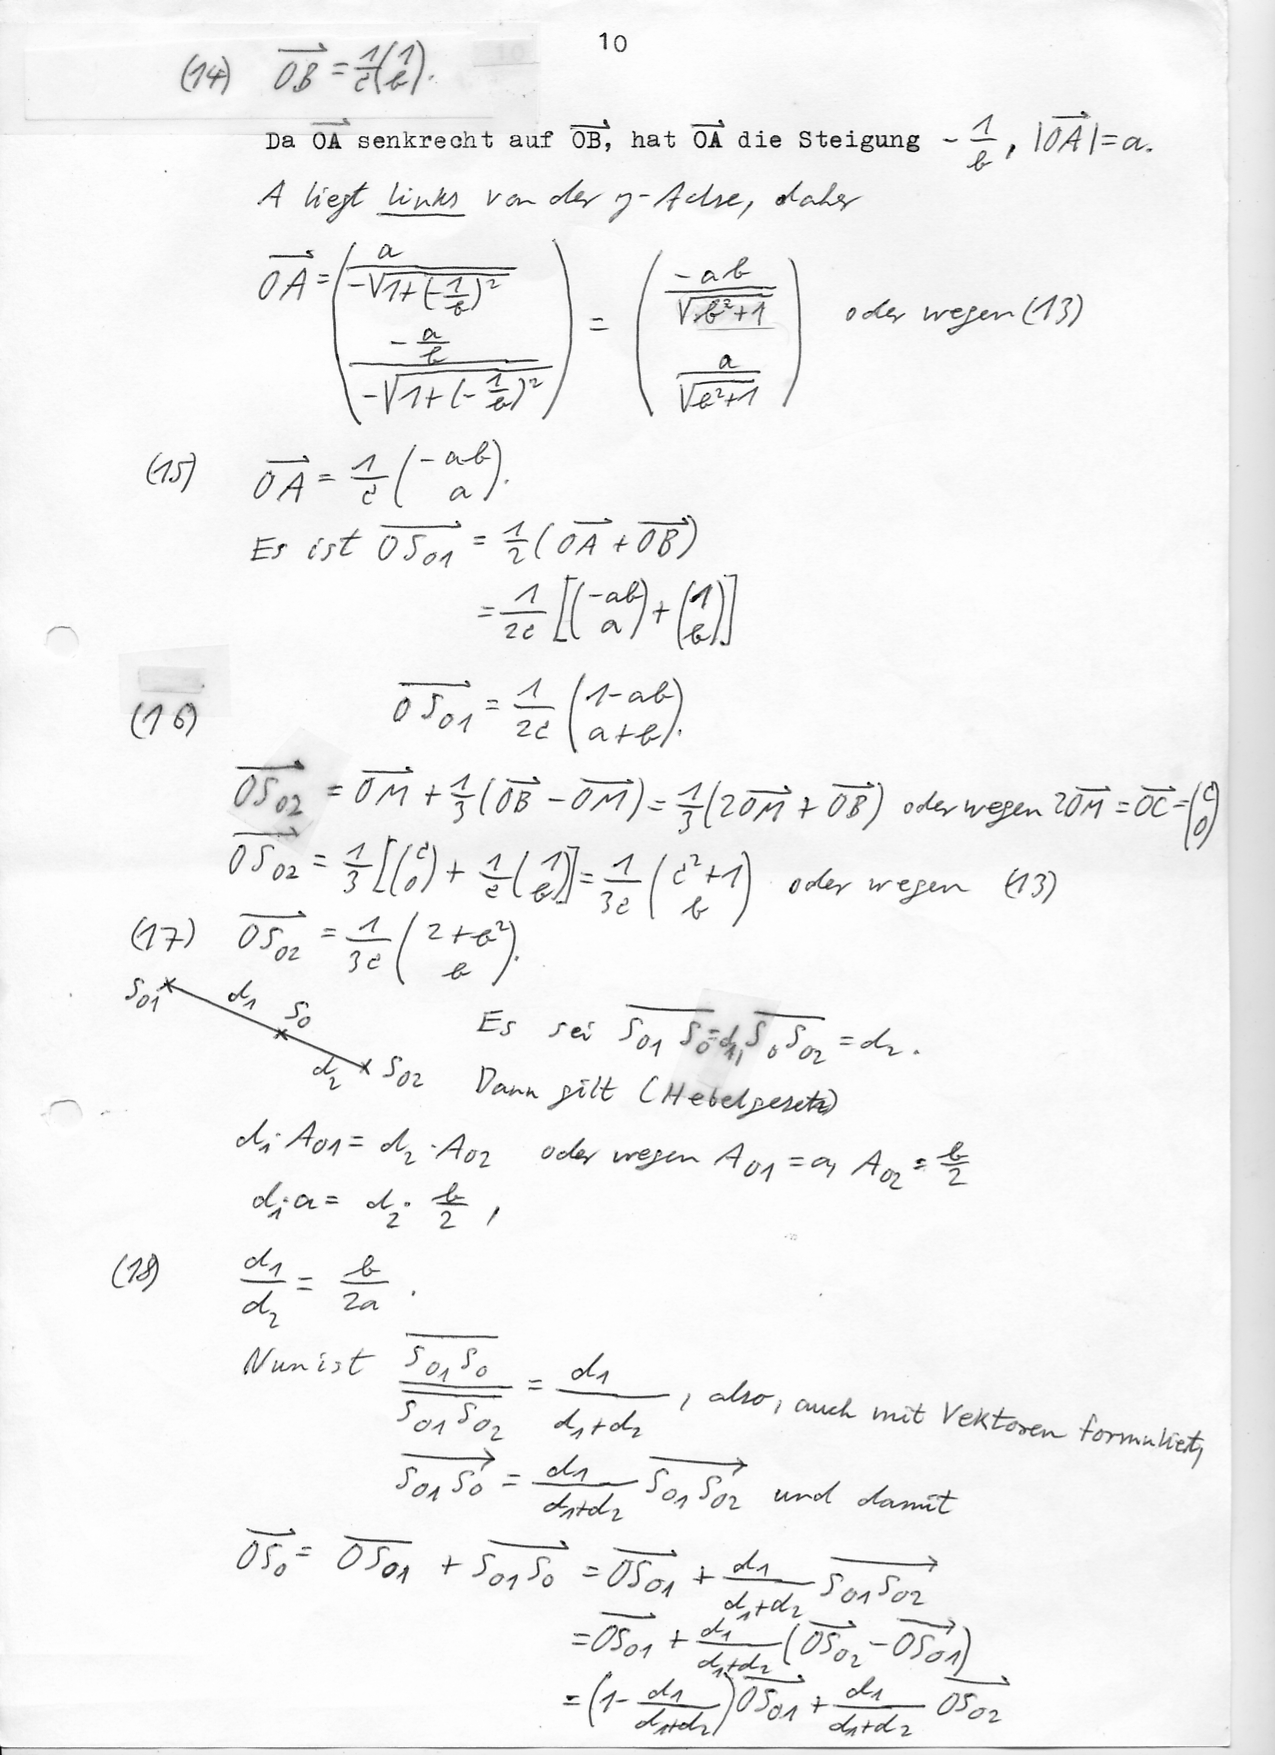 10
(14) OB⃗ = 1/c (1 / b).
Da OA⃗ senkrecht auf OB⃗, hat OA⃗ die Steigung - 1/b, |OA⃗| = a.
A liegt links von der y-Achse, daher
OA⃗ = (a / -√(1+(-1/b)²) ; -a/b / -√(1+(-1/b)²)) = (-ab / √(b²+1) ; a / √(b²+1)) oder wegen (13)
(15) OA⃗ = 1/c (-ab ; a).
Es ist OS₀₁⃗ = 1/2 (OA⃗ + OB⃗)
= 1/2c [(-ab ; a) + (1 ; b)]
(16) OS₀₁⃗ = 1/2c (1-ab ; a+b).
OS₀₂⃗ = OM⃗ + 1/3 (OB⃗ - OM⃗) = 1/3 (2OM⃗ + OB⃗) oder wegen 2OM⃗ = OC⃗ = (c ; 0)
OS₀₂⃗ = 1/3 [(c ; 0) + 1/c (1 ; b)] = 1/3c (c²+1 ; b) oder wegen (13)
(17) OS₀₂⃗ = 1/3c (2+b² ; b).
S₀₁ d₁ S₀ d₂ S₀₂
Es sei S₀₁S₀ = d₁, S₀S₀₂ = d₂.
Dann gilt (Hebelgesetz)
d₁·A₀₁ = d₂·A₀₂ oder wegen A₀₁ = a, A₀₂ = b/2
d₁·a = d₂· b/2 ,
(18) d₁/d₂ = b/2a .
Nun ist S₀₁S₀ / S₀₁S₀₂ = d₁ / d₁+d₂ , also, auch mit Vektoren formuliert,
S₀₁S₀⃗ = d₁/d₁+d₂ S₀₁S₀₂⃗ und damit
OS₀⃗ = OS₀₁⃗ + S₀₁S₀⃗ = OS₀₁⃗ + d₁/d₁+d₂ S₀₁S₀₂⃗
= OS₀₁⃗ + d₁/d₁+d₂ (OS₀₂⃗ - OS₀₁⃗)
= (1 - d₁/d₁+d₂) OS₀₁⃗ + d₁/d₁+d₂ OS₀₂⃗